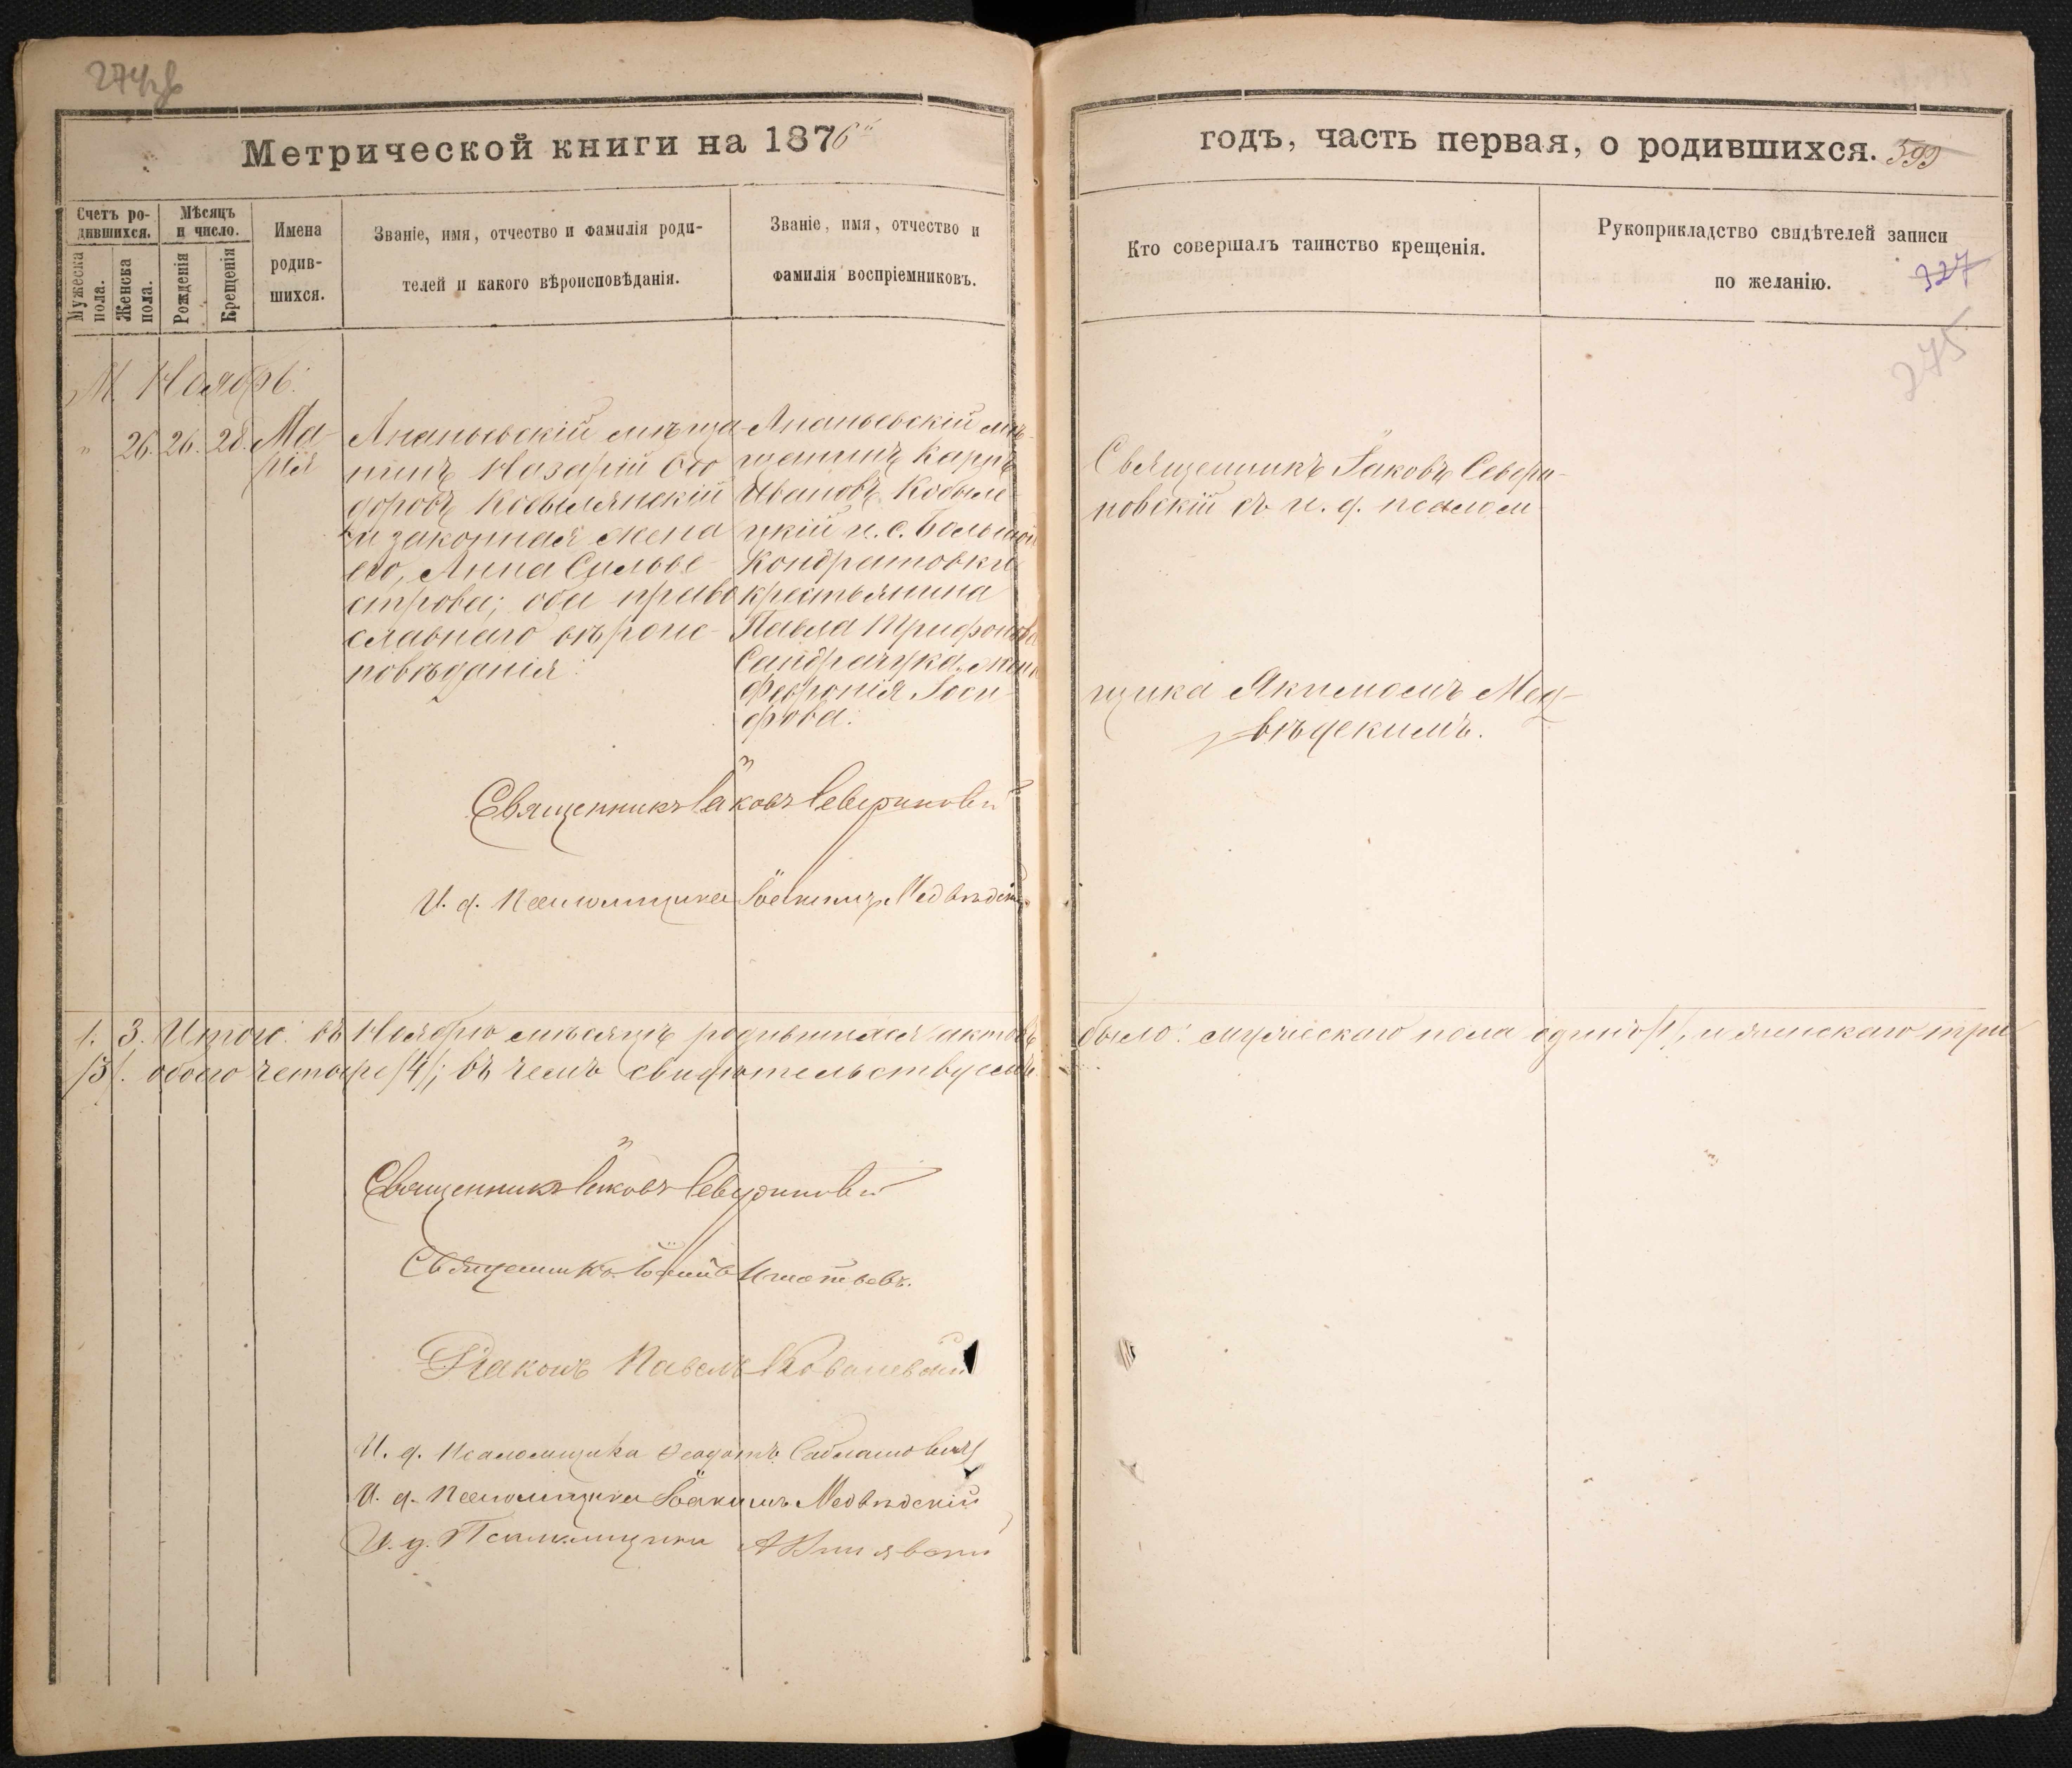 274об
Метрической книги на 1876й
годъ, часть первая, о родившихся. 399
Счетъ ро-
дившихся.
Мѣсяцъ
и число.
Мужеска
пола.
Женска
пола.
Рожденія
Крещенія
Имена
родив-
шихся.
Званіе, имя, отчество и фамилія роди-
телей и какого вѣроисповѣданія.
Званіе, имя, отчество и
фамилія воспріемниковъ.
Кто совершалъ таинство крещенія.
Рукоприкладство свидѣтелей записи
по желанію.
327
275
М. Ноябрь:
" 26. 26. 28. Ма-
рія
Ананьевскій мѣща-
нинъ Назарій Ѳео
доровъ Кобылянскій
и законная жена
его, Анна Сильве-
строва; оба право
славнаго вѣроис-
повѣданія:
Ананьевскій мѣ-
щанинъ Карпъ
Ивановъ Кобыле-
цкій и с. Большой
Кондратовки
крестьянина
Павла Трифонова
Сандрачука жена
Февронія Іоси-
фова:
Священникъ Іаковъ Севери-
новскій съ и. д. псалом
щика Акимомъ Мед-
вѣдскимъ.
Священникъ Іаковъ Севериновскій
И. д. Псаломщика Іоакимъ Медвѣдскій
1. 3. Итого: въ Ноябрѣ мѣсяцѣ родившихся актовъ было: мужескаго пола одинъ /1/, и женскаго три
/3/. обоего четыре /4/; въ чемъ свидѣтельствуемъ:
Священникъ Іаковъ Севериновскій
Священникъ Игнатьевъ.
Діаконъ Павелъ Ковалевскій
И. д. Псаломщика Ѳеодотъ
И. д. Псаломщика Іоакимъ Медвѣдскій
И. д. Псаломщика